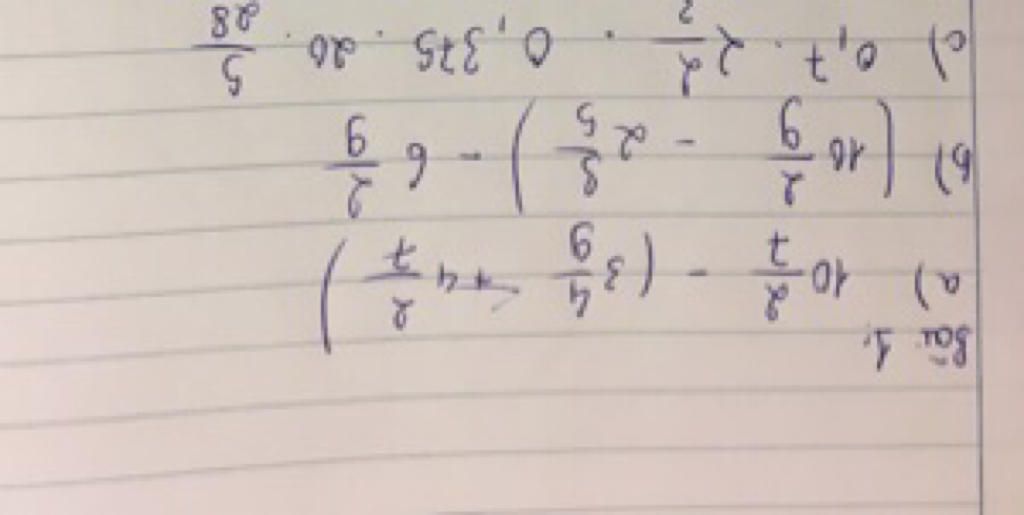 Bài 1.
a) 10 2/7 - (3 4/9 + 4 2/7)
b) (10 2/9 - 2 3/5) - 6 2/9
c) 0,7 . 2 2/ . 0,375 . 20 . 5/28